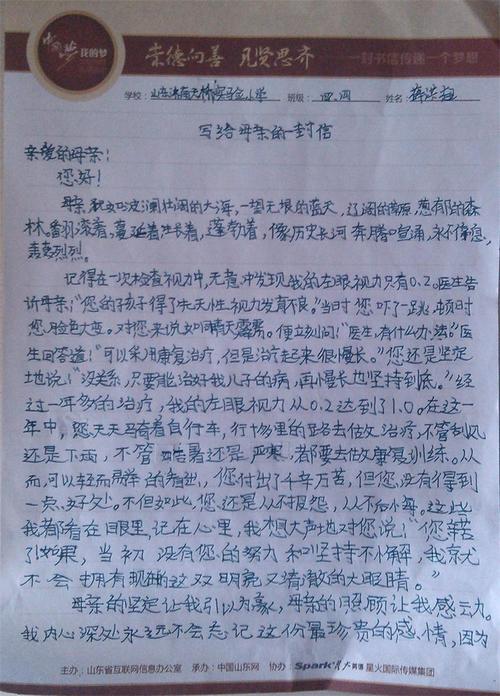 中国梦 我的梦 崇德向善 见贤思齐 一封书信传递一个梦想
学校：山东济南天桥宝华小学 班级：四、四 姓名
写给母亲的一封信
亲爱的母亲：
您好！
母亲就如波澜壮阔的大海，一望无垠的蓝天，辽阔的草原，葱郁的森
林。翻滚着，蔓延着，生长着，蓬勃着，像历史长河奔腾咆哮，永不停息，
轰轰烈烈。
记得在一次检查视力中，无意中发现我的左眼视力只有0.2。医生告
诉母亲：“您的孩子得了先天性视力发育不良。”当时您吓了一跳，顿时
您脸色大变。对您来说如晴天霹雳。便立刻问：“医生，有什么办法？”医
生回答道：“可以采用康复治疗，但是治疗起来很慢长。”您还是坚定
地说：“没关系，只要能治好我儿子的病，再慢长也坚持到底。”经
过一年多的治疗，我的左眼视力从0.2达到了1.0。在这一
年中，您天天骑着自行车，行十多里的路去做治疗，不管刮风
还是下雨，不管酷暑还是严寒，都要去做康复训练。从
而，可以轻而易举的看出，您付出了千辛万苦，但您没有得到
一点好处。不但如此，您还是从不报怨，从不后悔。这些
我都看在眼里，记在心里，我想大声地对您说：“您辛苦
了！如果，当初没有您的努力和坚持不懈，我就
不会拥有现在的这双明亮又清澈的大眼睛。”
母亲的坚定让我引以为豪，母亲的照顾让我感动。
我内心深处永远不会忘记这份最珍贵的感情，因为
主办：山东省互联网信息办公室 承办：中国山东网 协办：Spark 星火英语 星火国际传媒集团